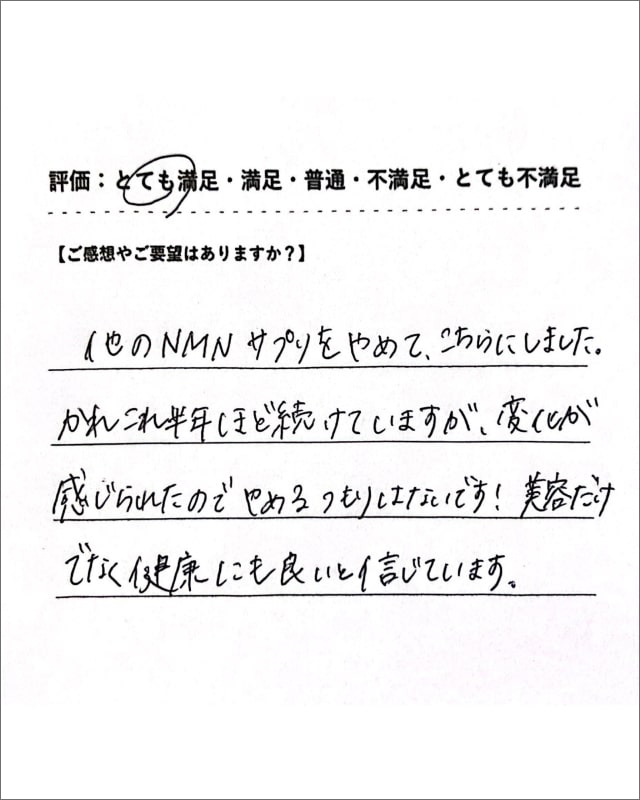 評価：とても満足・満足・普通・不満足・とても不満足
【ご感想やご要望はありますか？】
他のNMNサプリをやめて、こちらにしました。
かれこれ半年ほど続けていますが、変化が
感じられたのでやめるつもりはないです！美容だけ
でなく健康にも良いと信じています。